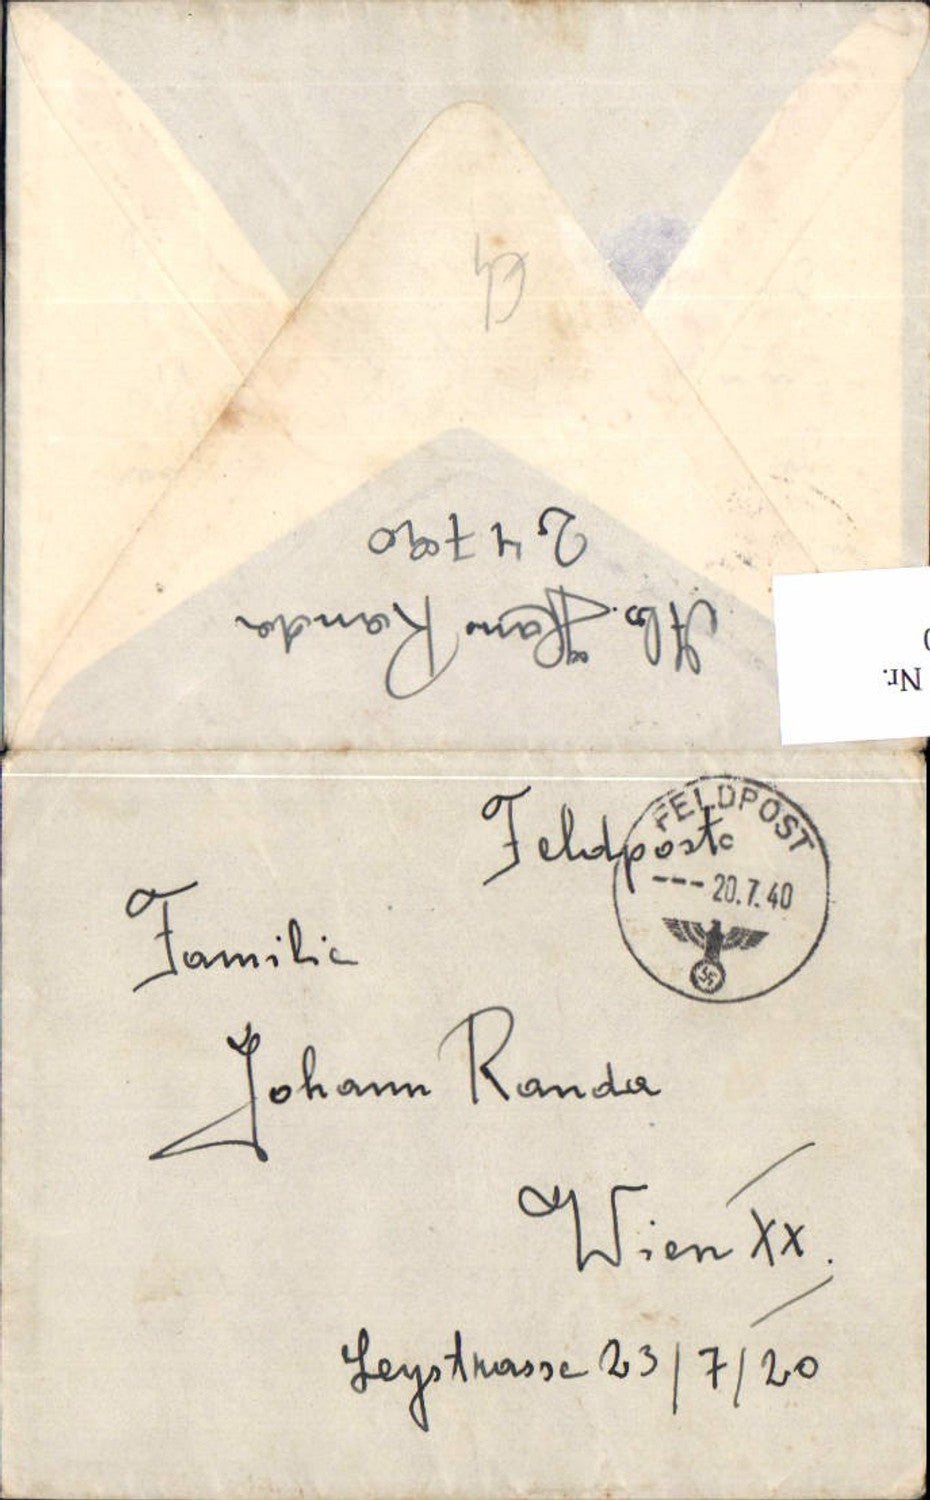 Ab. Hans Randa
24790
Nr.
Feldpost
FELDPOST
--- 20.7.40
Familie
Johann Randa
Wien XX.
Leystrasse 23/7/20